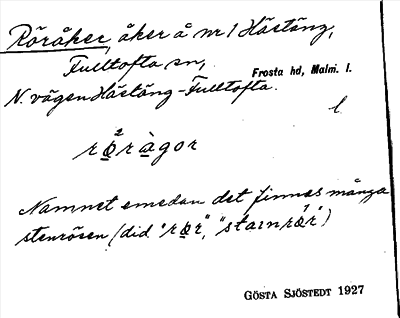 Röråker, åker å nr 1 Hästäng,
Fulltofta sn,
Frosta hd, Malm. l.
N. vägen Hästäng-Fulltofta.
l.
rø̲²rà̲gor
Namnet emedan det finnes många
stenrösen (did "rø̲r", "stainrø̲'r")
GÖSTA SJÖSTEDT 1927